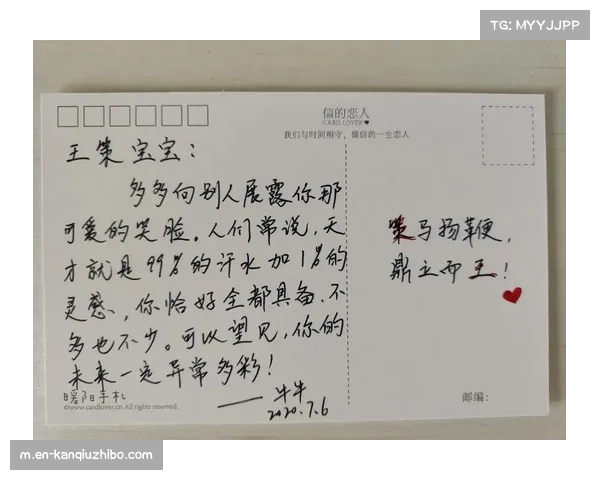 TG: MYYJJPP
信的恋人
CARD LOVER
我们与时间相守，做信的一生恋人
王策宝宝：
多多向别人展露你那
可爱的笑脸。人们常说，天
才就是99%的汗水加1%的
灵感，你恰好全都具备、不
多也不少。可以望见，你的
未来一定异常多彩！
——牛牛
2020.7.6
策马扬鞭，
鼎立而王！
暖阳手札
©www.cardlover.cn All rights reserved.
邮编：
m.en-kanqiuzhibo.com